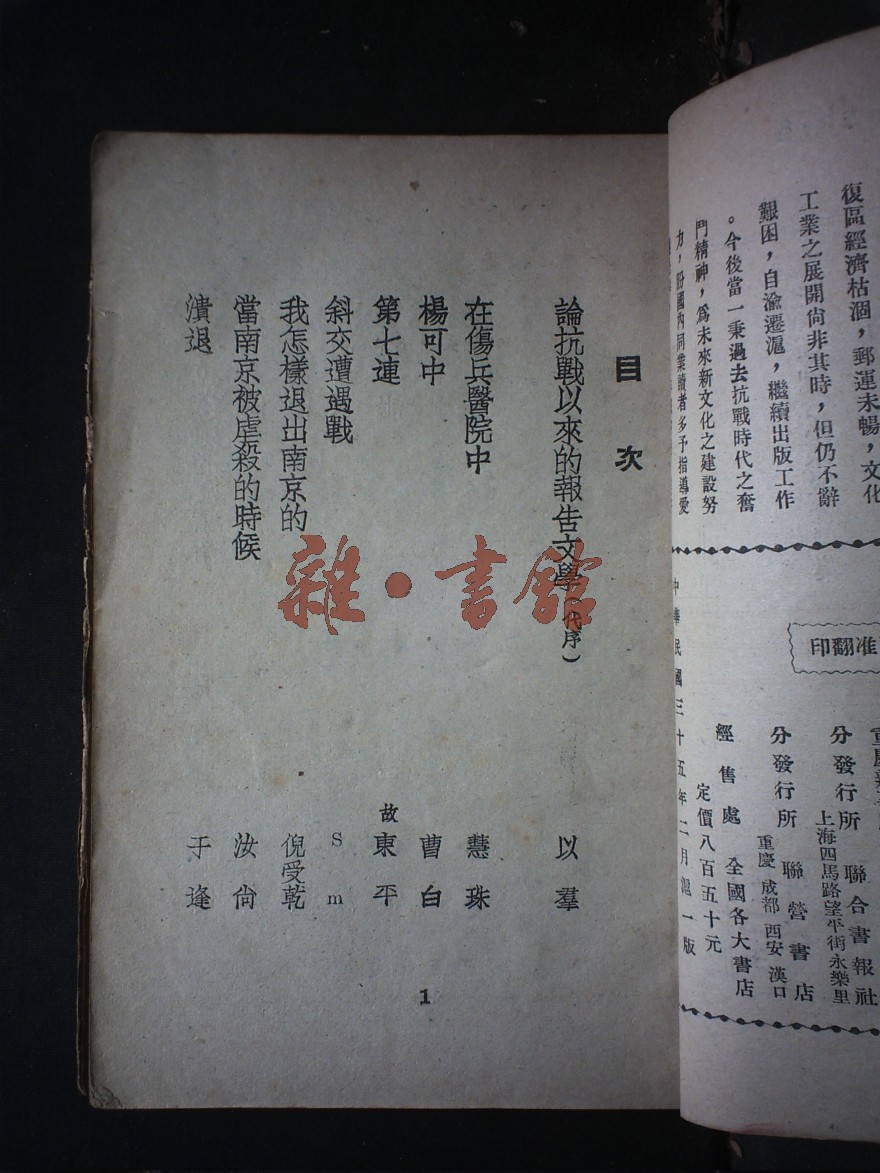 復區經濟枯涸，郵運未暢，文化
工業之展開尙非其時，但仍不辭
艱困，自渝遷滬，繼續出版工作
。今後當一秉過去抗戰時代之奮
鬥精神，爲未來新文化之建設努
力，盼國內同業讀者多予指導愛
准翻印
分發行所 聯合書報社
上海四馬路望平街永樂里
分發行所 聯營書店
重慶 成都 西安 漢口
經售處 全國各大書店
定價八百五十元
中華民國三十五年二月滬一版
目次
論抗戰以來的報告文學（代序） 以羣
在傷兵醫院中 慧珠
楊可中 曹白
第七連 故東平
斜交遭遇戰 Sm
我怎樣退出南京的 倪受乾
當南京被虐殺的時候 汝尙
潰退 于逢
1
雜·書館